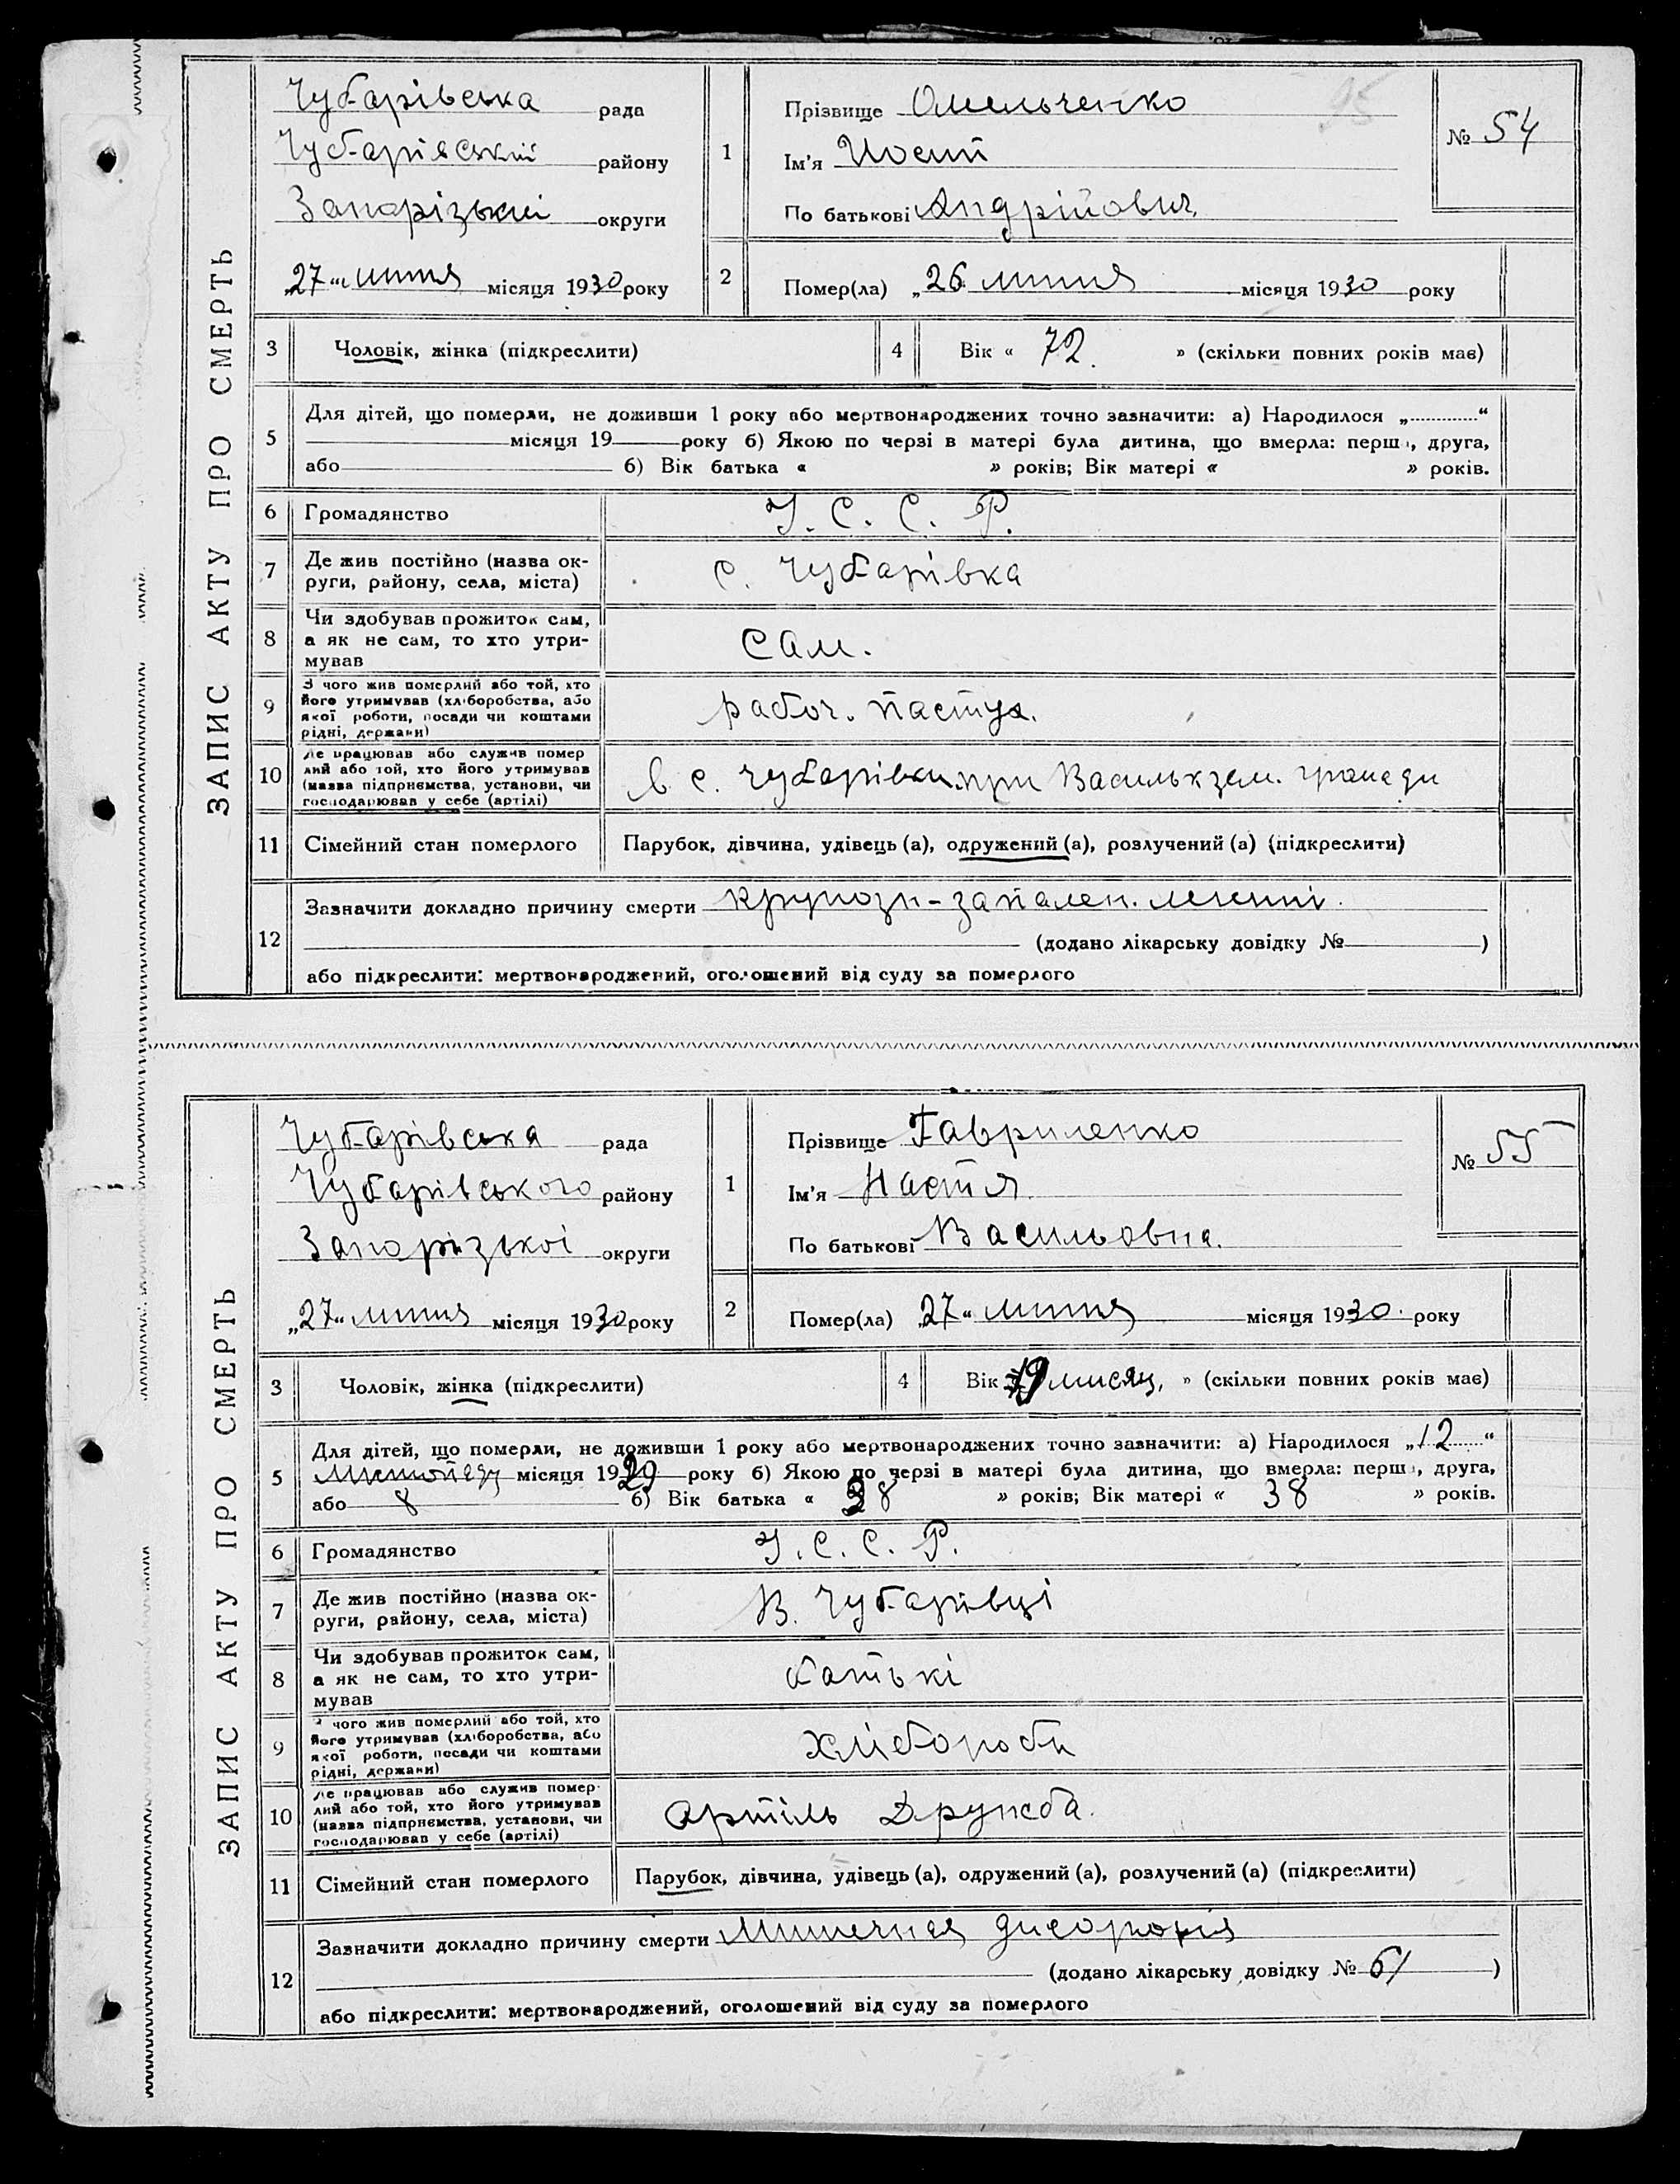 ЗАПИС АКТУ ПРО СМЕРТЬ
Чубарівська рада
Чубарівській району
Запорізькій округи
„27“ липня місяця 1930 року
1
Прізвище Омельченко
Ім'я Иосип
По батькові Андрійович
№ 54
95
2
Помер(ла) „26 липня місяця 1930 року
3 Чоловік, жінка (підкреслити)
4 Вік « 72 » (скільки повних років має)
5
Для дітей, що померли, не доживши 1 року або мертвонароджених точно зазначити: а) Народилося „ “
місяця 19 року б) Якою по черзі в матері була дитина, що вмерла: перша, друга,
або б) Вік батька « » років; Вік матері « » років.
6 Громадянство У. С. С. Р.
7 Де жив постійно (назва ок-
руги, району, села, міста) с. Чубарівка
8 Чи здобував прожиток сам,
а як не сам, то хто утри-
мував сам.
9 З чого жив померлий або той, хто
його утримував (хліборобства, або
якої роботи, посади чи коштами
рідні, держави) рабоч. пастух.
10 Де працював або служив помер
лий або той, хто його утримував
(назва підприємства, установи, чи
господарював у себе (артілі) в с. Чубарівки при Васильк зем. громади
11 Сімейний стан померлого Парубок, дівчина, удівець (а), одружений (а), розлучений (а) (підкреслити)
12
Зазначити докладно причину смерти крупозн-запален. легені.
(додано лікарську довідку № )
або підкреслити: мертвонароджений, оголошений від суду за померлого
ЗАПИС АКТУ ПРО СМЕРТЬ
Чубарівська рада
Чубарівського району
Запорізької округи
„27“ липня місяця 1930 року
1
Прізвище Гавриленко
Ім'я Настя
По батькові Васильовна.
№ 55
2
Помер(ла) 27“ липня місяця 1930 року
3 Чоловік, жінка (підкреслити)
4 Вік 9 мисяц. » (скільки повних років має)
5
Для дітей, що померли, не доживши 1 року або мертвонароджених точно зазначити: а) Народилося „12“
місяця 1929 року б) Якою по черзі в матері була дитина, що вмерла: перша, друга,
або 8 б) Вік батька « 38 » років; Вік матері « 38 » років.
6 Громадянство У. С. С. Р.
7 Де жив постійно (назва ок-
руги, району, села, міста) В. Чубарівці
8 Чи здобував прожиток сам,
а як не сам, то хто утри-
мував батькі
9 З чого жив померлий або той, хто
його утримував (хліборобства, або
якої роботи, посади чи коштами
рідні, держави) хліборобн
10 Де працював або служив помер-
лий або той, хто його утримував
(назва підприємства, установи, чи
господарював у себе (артілі) артіль Дружба.
11 Сімейний стан померлого Парубок, дівчина, удівець (а), одружений (а), розлучений (а) (підкреслити)
12
Зазначити докладно причину смерти
(додано лікарську довідку № 61 )
або підкреслити: мертвонароджений, оголошений від суду за померлого